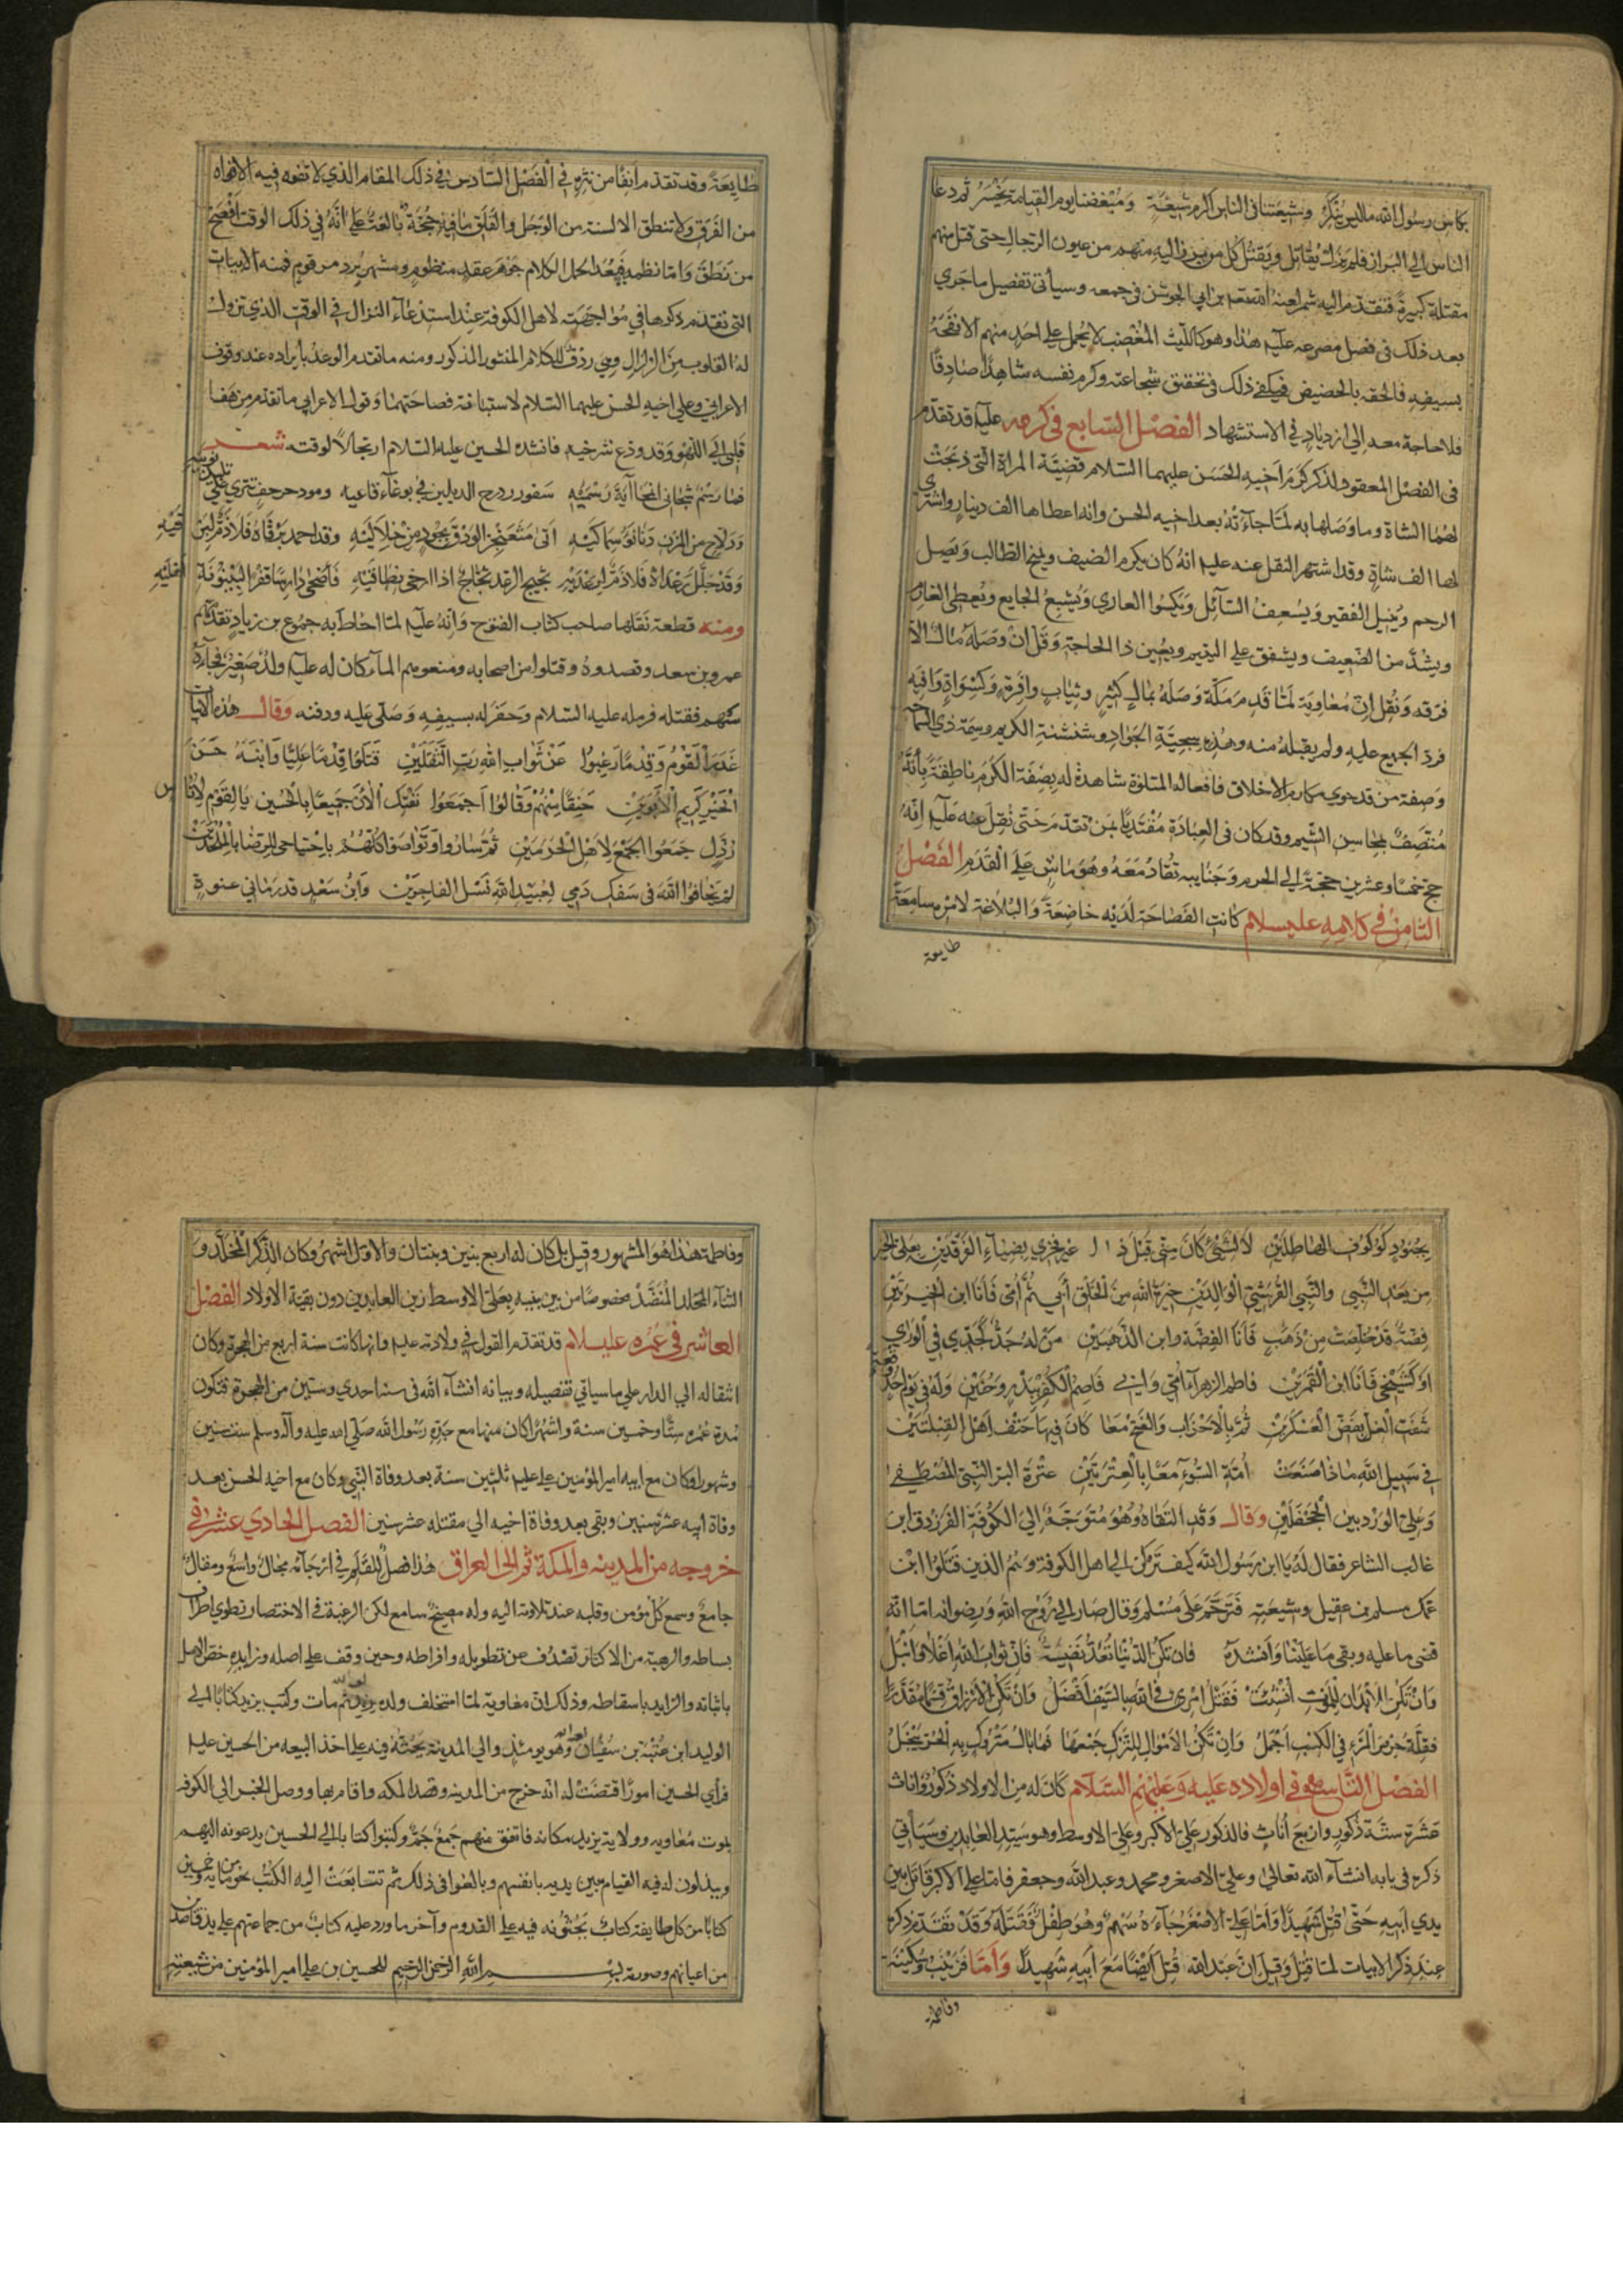 بكاس رسول الله ماليس ينكر وشيعتنا في الناس اكرم شيعة ومبغضنا يوم القيامة يخسر ثم دعا
الناس الي البراز فلم يزل يقاتل ويقتل كل من برز اليه منهم من عيون الرجال حتى قتل منهم
مقتلة كبيرة فتقدم اليه شمر لعنه الله بن ابي الجوشن في جمعه وسيأتي تفصيل ما جري
بعد ذلك في فصل مصرعه عليه هذا وهو كالليث المغضب لا يحمل على احد منهم الا نفحه
بسيفه فالحقه بالحضيض فيكفي ذلك في تحقيق شجاعته وكرم نفسه شاهدا صادقا
فلا حاجة معه الى ازدياد في الاستشهاد الفصل السابع في كرمه عليه قد تقدم
في الفصل المعقود لذكر كرم اخيه الحسن عليهما السلام قضية المراة التي ذبحت
لهما الشاة وما وصلها به لما جاءته بعد اخيه الحسن وانه اعطاها الف دينار واشتري
لها الف شاة وقد اشتهر النقل عنه عليه انه كان يكرم الضيف ويمنح الطالب ويصل
الرحم وينيل الفقير ويسعف السائل ويكسوا العاري ويشبع الجايع ويعطي الغارم
ويشد من الضعيف ويشفق على اليتيم ويعين ذا الحاجة وقل ان وصله مال الا
فرقه ونقل ان معاوية لما قدم مكة وصله بمال كثير وثياب وافرة وكسوات وافيه
فرد الجميع عليه ولم يقبله منه وهذه سجية الجواد وشنشنة الكريم وسمة ذي السماحة
وصفة من قد حوي مكارم الاخلاق فافعاله المتلوة شاهدة له بصفة الكرم ناطقة بأنه
متصف بمحاسن الشيم وقد كان في العبادة مقتديا بمن تقدم حتى نقل عنه عليه انه
حج خمسا وعشرين حجة الي الحرم وجنايبه تقاد معه وهو ماش على القدم الفصل
الثامن في كلامه عليه السلام كانت الفصاحة لديه خاضعة والبلاغة لامره سامعة
طايعة
طايعة وقد تقدم انفا من نثره في الفصل السادس في ذلك المقام الذي لا تفوه فيه الافواه
من الفرق ولا تنطق الالسنة من الوجل والقلق ما فيه حجة بالغة على انه في ذلك الوقت افصح
من نطق واما نظمه فيعد من الكلام جوهر عقد منظوم ومشهر برد مرقوم فمنه الابيات
التي تقدم ذكرها في مواجهته لاهل الكوفة عند استدعاء النزال في الوقت الذي تزول
له القلوب من الزلزال وهي ردف للكلام المنثور المذكور ومنه ما تقدم الوعد بايراده عند وقوف
الاعرابي على اخيه الحسن عليهما السلام لاستبانة فصاحتهما وقول الاعرابي ما تقدم من هفا
قلبي الي اللهو وقد ودع شرخيه فانشده الحسين عليه السلام ارتجالا لوقته شعر
فما رسم شجاني انمحا آية رسميه سفور درج الذيلين في بوغاء قاعيه ومود حرجف تتري على
ودلاح من المزن دنا نوء سماكيه اتى مثعنجر الودق بجود من خلاليه وقد احمد برقاه فلا ذم لبرقيه
وقد جلل رعداه فلا ذم لرعديه ثجيج الرعد ثجاج اذا ارخى نطاقيه فأضحى دارسا قفرا لبينونة اهليه
ومنه قطعة نقلها صاحب كتاب الفتوح وانه عليه لما احاط به جموع بن زياد تقدمهم
عمرو بن سعد وقصدوه وقتلوا من اصحابه ومنعوهم الماء كان له عليه ولد صغير فجاءه
سهم فقتله فرمله عليه السلام وحفر له بسيفه وصلى عليه ودفنه وقال هذه الابيات
غدر القوم وقدما رغبوا عن ثواب الله رب الثقلين قتلوا قدما عليا وابنه حسن
الخير كريم الابوين حنقا منهم وقالوا اجمعوا نفتك الان جميعا بالحسين يا لقوم لاناس
رذل جمعوا الجمع لاهل الحرمين ثم ساروا وتواصوا كلهم باجتياحي للرضا بالملحدين
لم يخافوا الله في سفك دمي لعبيد الله نسل الفاجرين وابن سعد قد رماني عنوة
بجنود كوكوف الهاطلين لا لشيء كان مني قبل ذا غير فخري بضياء الفرقدين بعلي الخير
من بعد النبي والنبي القرشي الوالدين خيرة الله من الخلق ابي ثم امي فانا ابن الخيرتين
فضة قد خلصت من ذهب فانا الفضة وابن الذهبين من له جد كجدي في الوري
او كشيخي فانا ابن القمرين فاطم الزهراء امي وابي قاصم الكفر ببدر وحنين وله في يوم احد وقعة
شفت الغل بفض العسكرين ثم بالاحزاب والفتح معا كان فيها حتف اهل القبلتين
في سبيل الله ماذا صنعت امة السوء معا بالعترتين عترة البر النبي المصطفي
وعلي الورد بين الجحفلين وقال وقد التقاه وهو متوجه الي الكوفة الفرزدق ابن
غالب الشاعر فقال له يا ابن رسول الله كيف تركن الى اهل الكوفة وهم الذين قتلوا ابن
عمك مسلم بن عقيل وشيعته فترحم على مسلم وقال صار الي روح الله ورضوانه اما انه
قضى ما عليه وبقي ما علينا وانشده فان تكن الدنيا تعد نفيسة فان ثواب الله اعلا وانبل
وان تكن الابدان للموت انشئت فقتل امرئ في الله بالسيف افضل وان تكن الارزاق قسما مقدرا
فقلة حرص المرء في الكسب اجمل وان تكن الاموال للترك جمعها فما بال متروك به الحر يبخل
الفصل التاسع في اولاده عليه وعليهم السلام كان له من الاولاد ذكور واناث
عشرة ستة ذكور واربع اناث فالذكور علي الاكبر وعلي الاوسط وهو سيد العابدين وسيأتي
ذكره في بابه انشاء الله تعالى وعلي الاصغر ومحمد وعبد الله وجعفر فاما علي الاكبر قاتل بين
يدي ابيه حتى قتل شهيدا واما علي الاصغر جاءه سهم وهو طفل فقتله وقد تقدم ذكره
عند ذكر الابيات لما قتل وقيل ان عبد الله قتل ايضا مع ابيه شهيدا واما فزينب وسكينة
وفاطمة
وفاطمة هذا هو المشهور وقيل بل كان له اربع بنين وبنتان والاول اشهر وكان الذكر المخلد و
الثناء المنضد مخصوصا من بين بنيه بعلي الاوسط زين العابدين دون بقية الاولاد الفصل
العاشر في عمره عليه السلام قد تقدم القول في ولادته عليه وانها كانت سنة اربع من الهجرة وكان
انتقاله الي الدار على ما سياتي تفصيله وبيانه انشاء الله في سنة احدي وستين من الهجرة فتكون
مدة عمره ستا وخمسين سنة واشهرا كان منها مع جده رسول الله صلي الله عليه وآله وسلم ست سنين
وشهورا وكان مع ابيه امير المؤمنين علي عليه ثلثين سنة بعد وفاة النبي وكان مع اخيه الحسن بعد
وفاة ابيه عشر سنين وبقي بعد وفاة اخيه الي مقتله عشر سنين الفصل الحادي عشر في
خروجه من المدينه والمكة ثم الى العراق هذا فصل للقلم في ارجائه مجال واسع ومقال
جامع وسمع كل مؤمن وقلبه عند تلاوته اليه وله مصيخ سامع لكن الرغبة في الاختصار تطوي اطراف
بساطه والرهبة من الاكثار تصدف عن تطويله وافراطه وحين وقف على اصله وزايده خص الاصل
باثباته والزايد باسقاطه وذلك ان معاوية لما استخلف ولده يزيد ثم مات وكتب يزيد كتابا الي
الوليد ابن عتبة بن سفيان وهو يومئذ والي المدينة يحثه فيه على اخذ البيعه من الحسين عليه
فرأي الحسين امورا اقتضت له انه خرج من المدينه وقصد المكه واقام بها ووصل الخبر الى الكوفه
بموت معاويه وولاية يزيد مكانه فاتفق منهم جمع جم وكتبوا كتابا الي الحسين يدعونه اليهم
ويبذلون له فيه القيام بين يديه بانفسهم وبالغوا في ذلك ثم تتابعت اليه الكتب نحو مايه وخمسين
كتابا من كل طايفة كتاب يحثونه فيه على القدوم وآخر ما ورد عليه كتاب من جماعتهم على يد قاصد
من اعيانهم وصورته بسم الله الرحمن الرحيم للحسين بن علي امير المؤمنين من شيعته